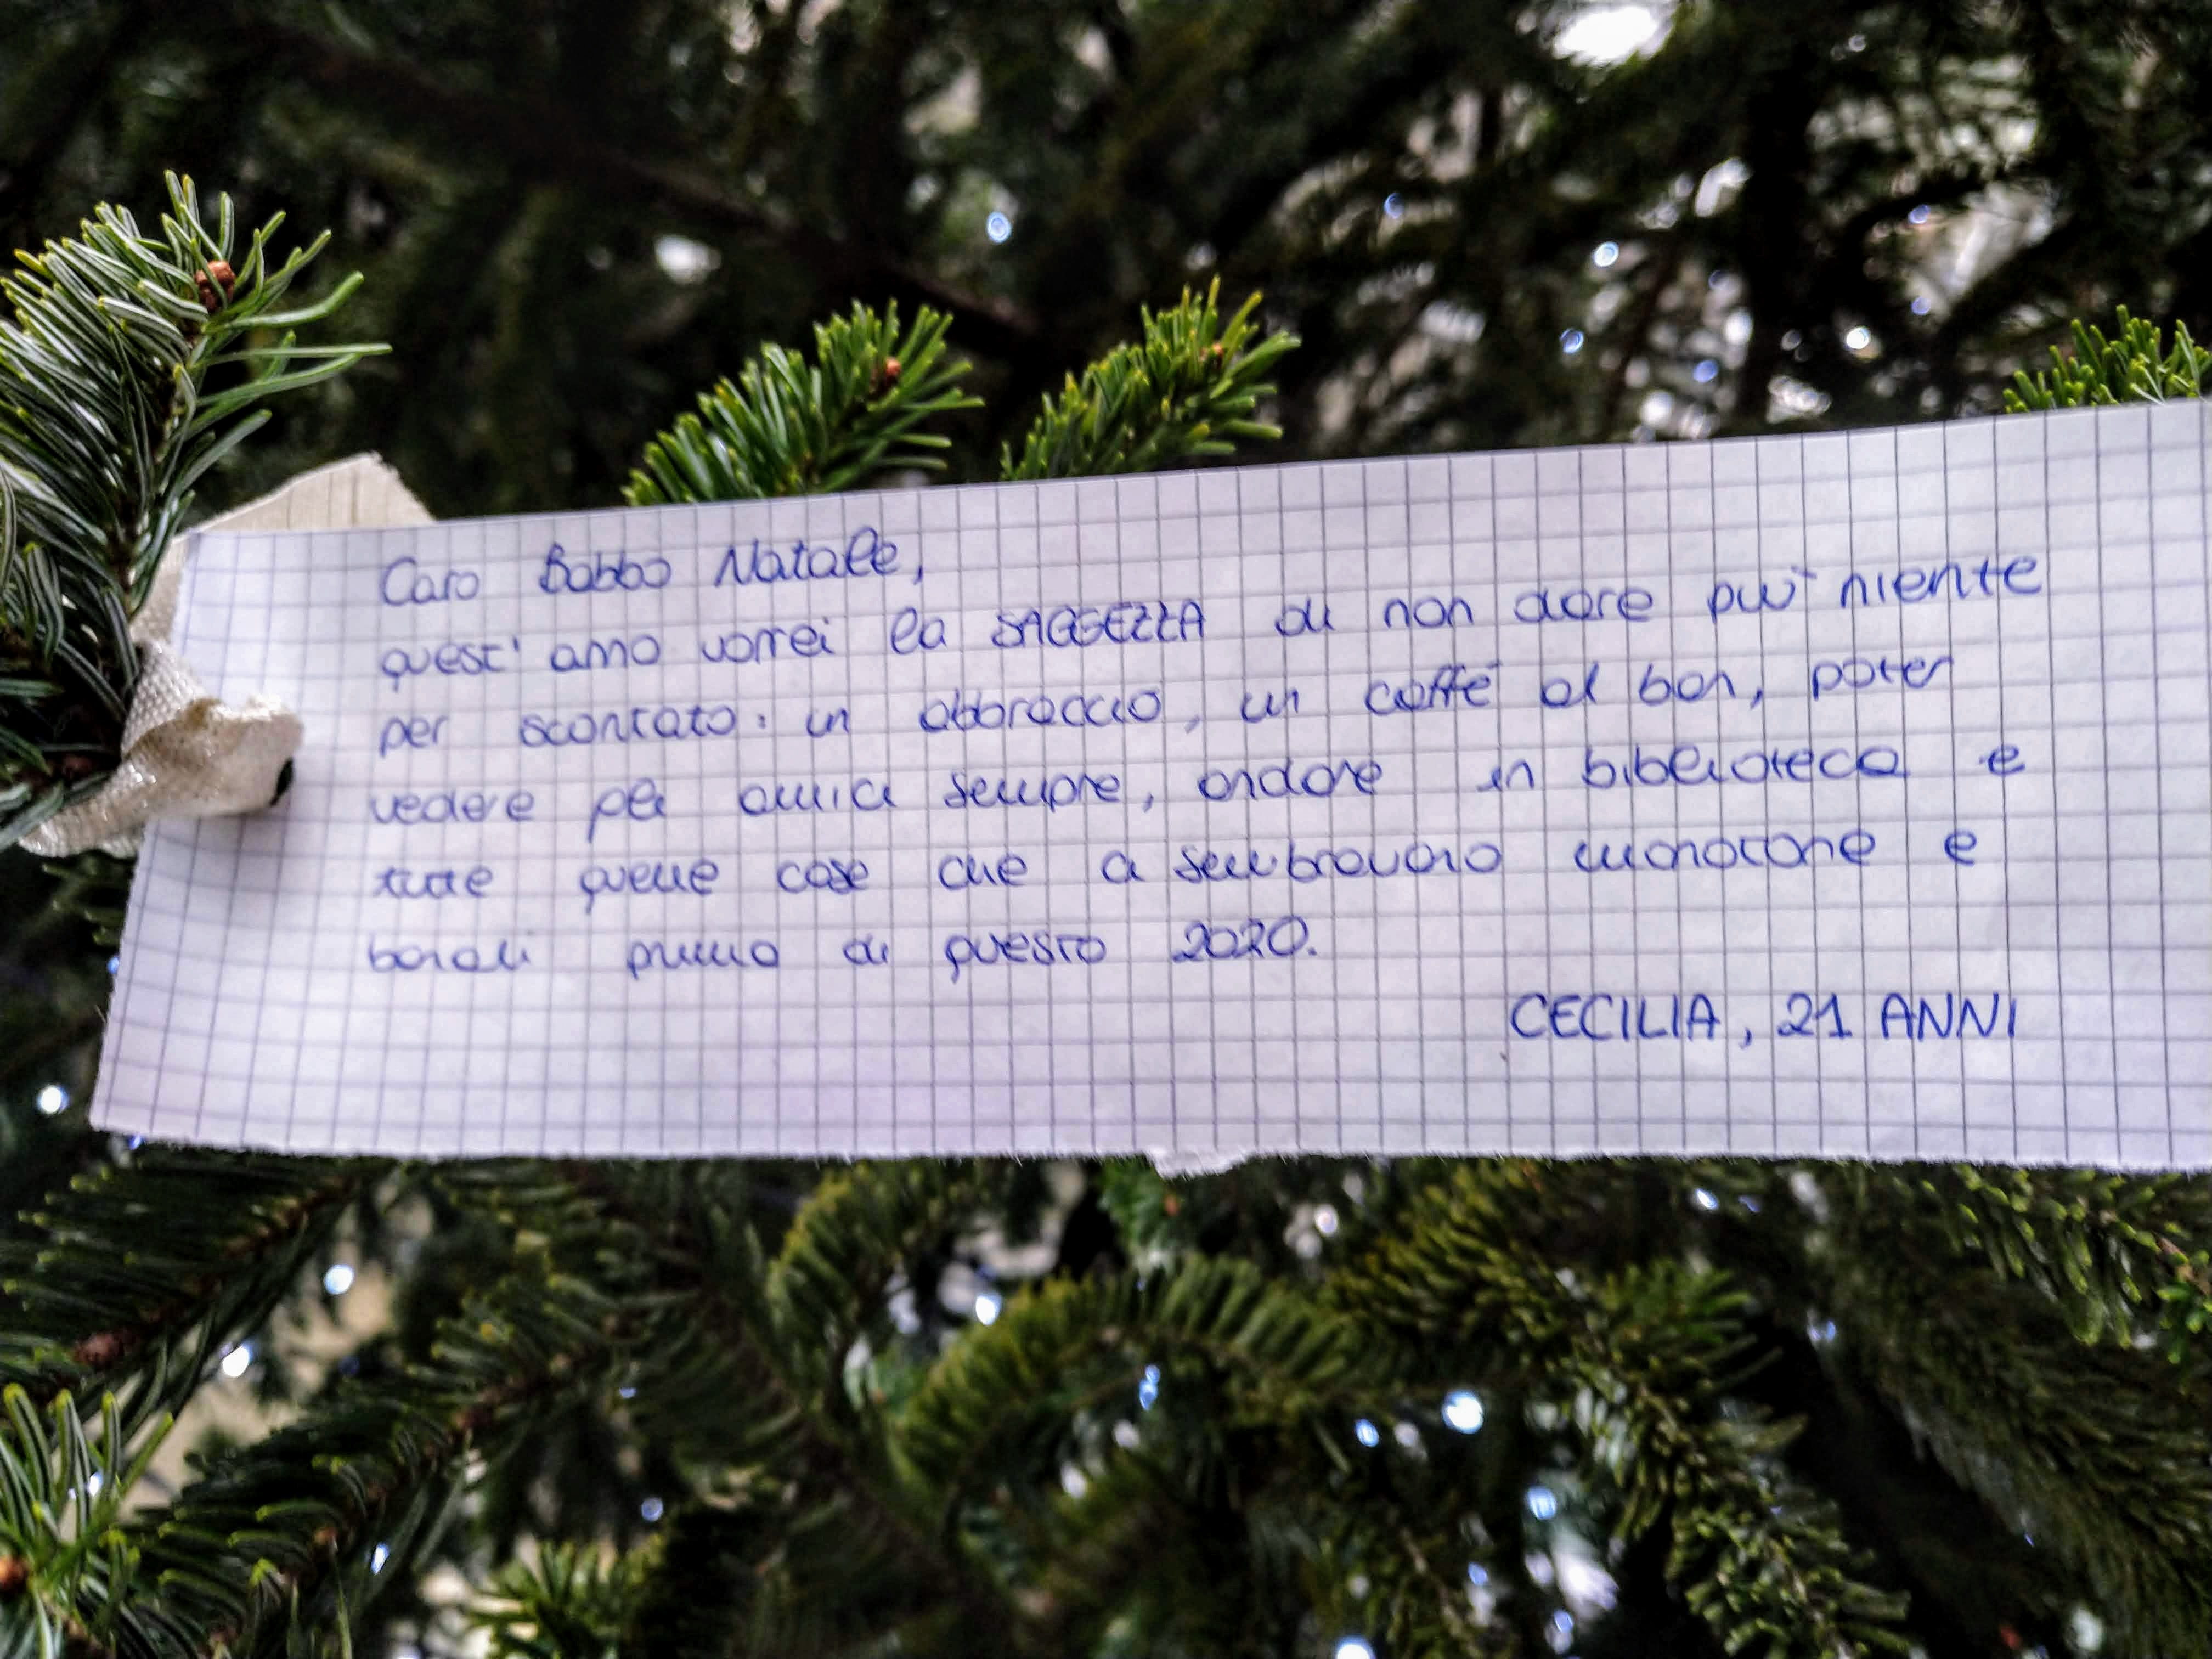 Caro Babbo Natale,
quest' anno vorrei la SAGGEZZA di non dare più niente
per scontato: un abbraccio, un caffè al bar, poter
vedere gli amici sempre, andare in biblioteca e
tutte quelle cose che ci sembravano monotone e
banali prima di questo 2020.
CECILIA, 21 ANNI